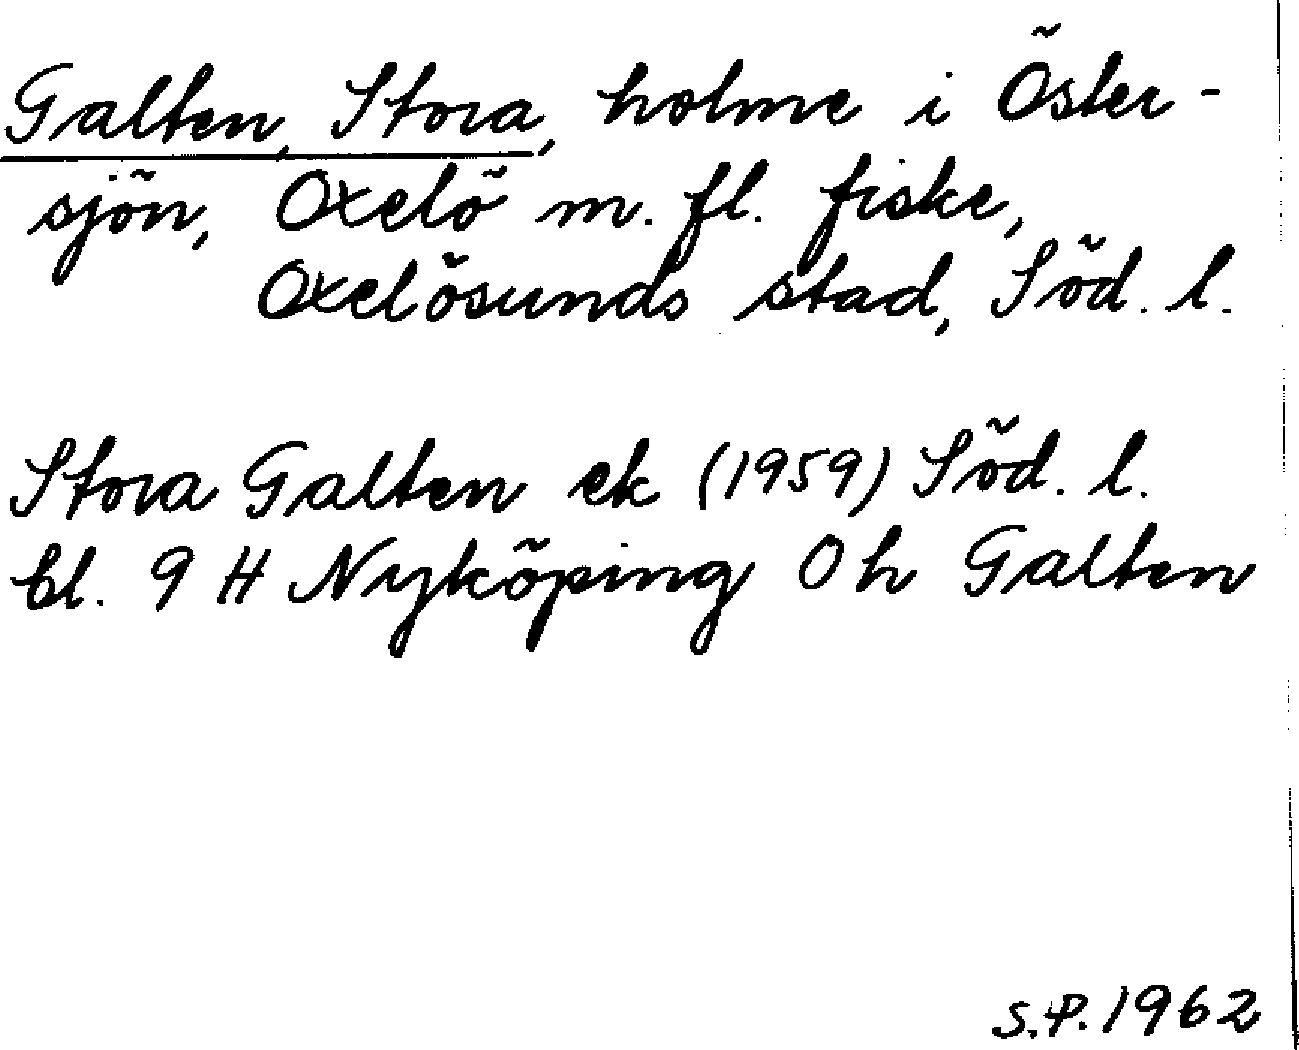 Galten, Stora, holme i Öster-
sjön, Oxelö m. fl. fiske,
Oxelösunds stad, Söd. l.
Stora Galten ek (1959) Söd. l.
bl. 9 H Nyköping 0 h Galten
S.P. 1962